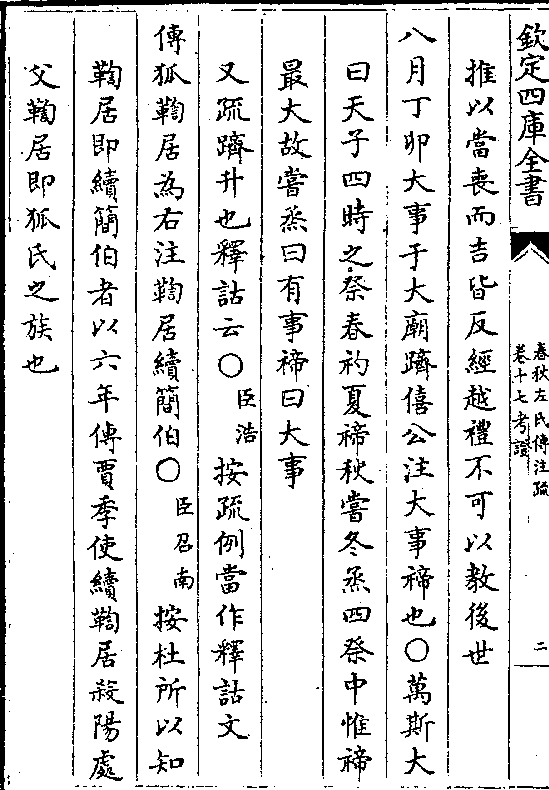 欽定四庫全書
春秋左氏傳注疏
卷十七考證
二
推以當喪而吉皆反經越禮不可以教後世
八月丁卯大事于大廟躋僖公注大事禘也○萬斯大
曰天子四時之祭春礿夏禘秋嘗冬烝四祭中惟禘
最大故嘗烝曰有事禘曰大事
又疏躋升也釋詁云○臣浩按疏例當作釋詁文
傳狐鞫居為右注鞫居續簡伯○臣召南按杜所以知
鞫居即續簡伯者以六年傳賈季使續鞫居殺陽處
父鞫居即狐氏之族也